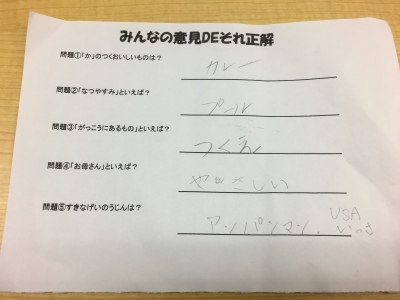 みんなの意見DEそれ正解
問題①「か」のつくおいしいものは？
カレー
問題②「なつやすみ」といえば？
プール
問題③「がっこうにあるもの」といえば？
つくえ
問題④「お母さん」といえば？
やさしい
問題⑤すきなげいのうじんは？
アンパンマン、USA